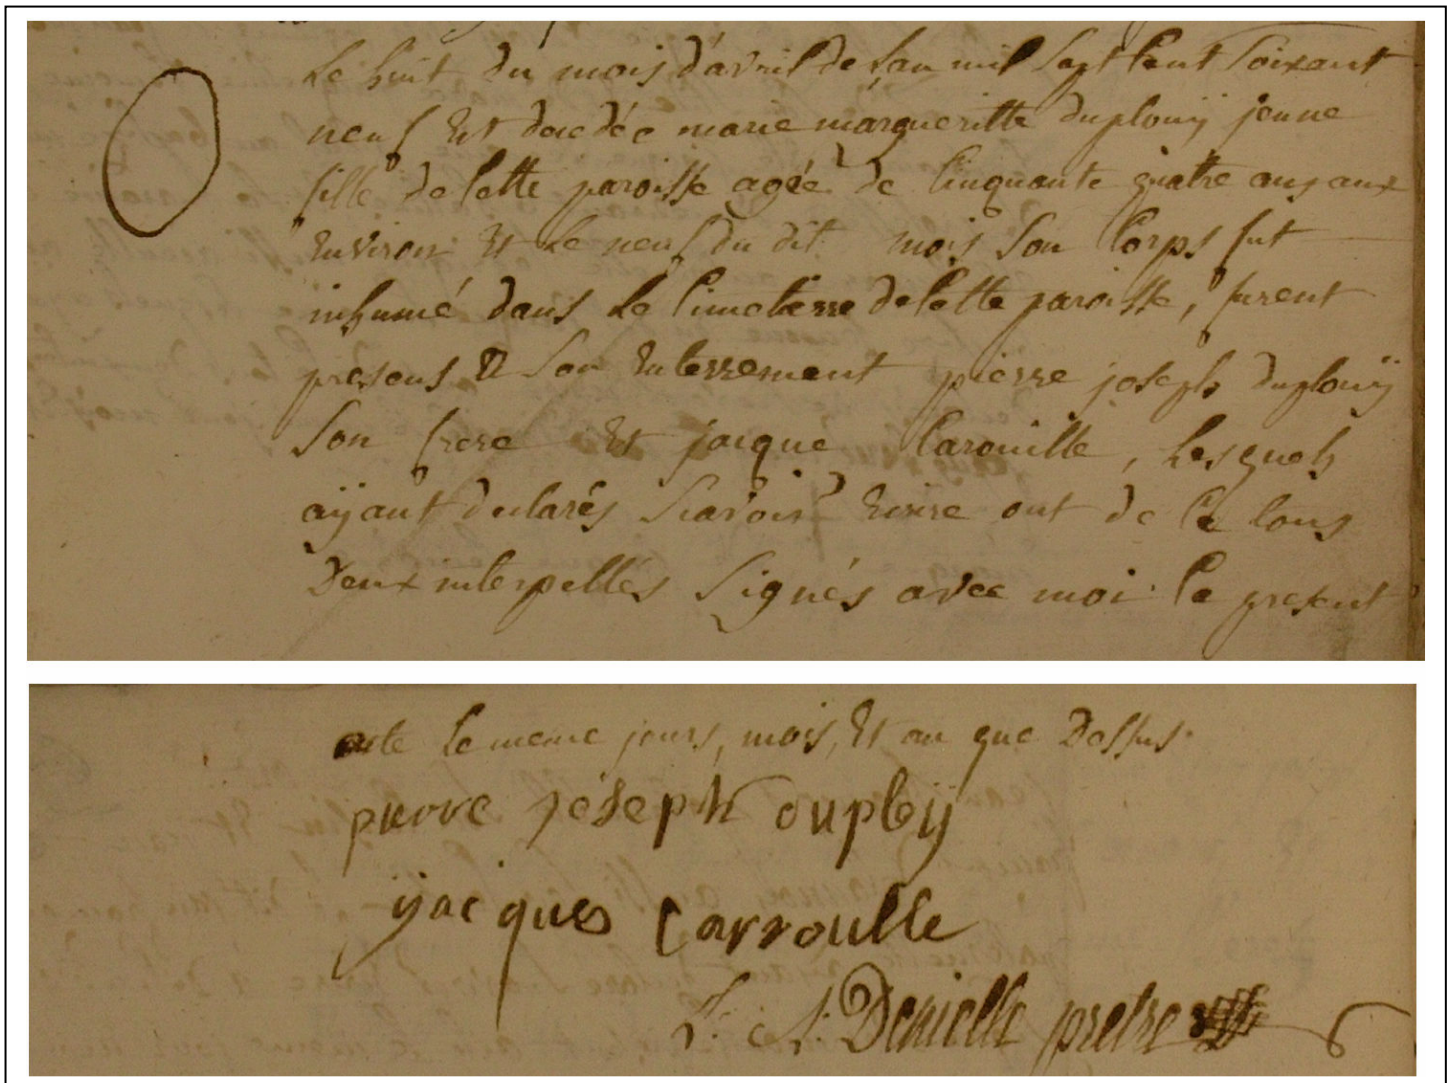 Le huit du mois d'avril de L'an mil Sept Cent Soixant
neuf Est decedée marie margueritte duplouÿ jeune
fille de Cette paroisse agée de Cinquante quatre ans aux
Environ Et Le neuf du dit mois Son Corps fut
inhumé dans Le Cimetierre de Cette paroisse, furent
presens a Son Enterrement pierre joseph duplouÿ
Son frere Et jacque Carouille, Lesquels
aÿant declarés Scavoir Ecrire ont de Ce tous
Deux interpellés Signés avec moi Ce present
acte Le meme jours, mois, Et an que Dessus
pierre joseph duploÿ
ijacques Carroulle
Denielle pretre